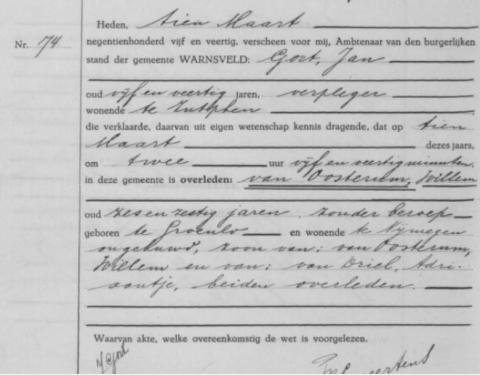 Heden, tien Maart
Nr. 174
negentienhonderd vijf en veertig, verscheen voor mij, Ambtenaar van den burgerlijken
stand der gemeente WARNSVELD: Gost, Jan
oud vijf en veertig jaren, verpleger
wonende te Zutphen
die verklaarde, daarvan uit eigen wetenschap kennis dragende, dat op tien
Maart dezes jaars,
om twee uur vijf en veertig minuten
in deze gemeente is overleden: van Oosterum, Willem
oud zes en zestig jaren, zonder beroep
geboren te Groenlo en wonende te Nijmegen
ongehuwd, zoon van: van Oosterum,
Willem en van: van Driel, Adri-
aantje, beiden overleden.
Waarvan akte, welke overeenkomstig de wet is voorgelezen.
J Gost